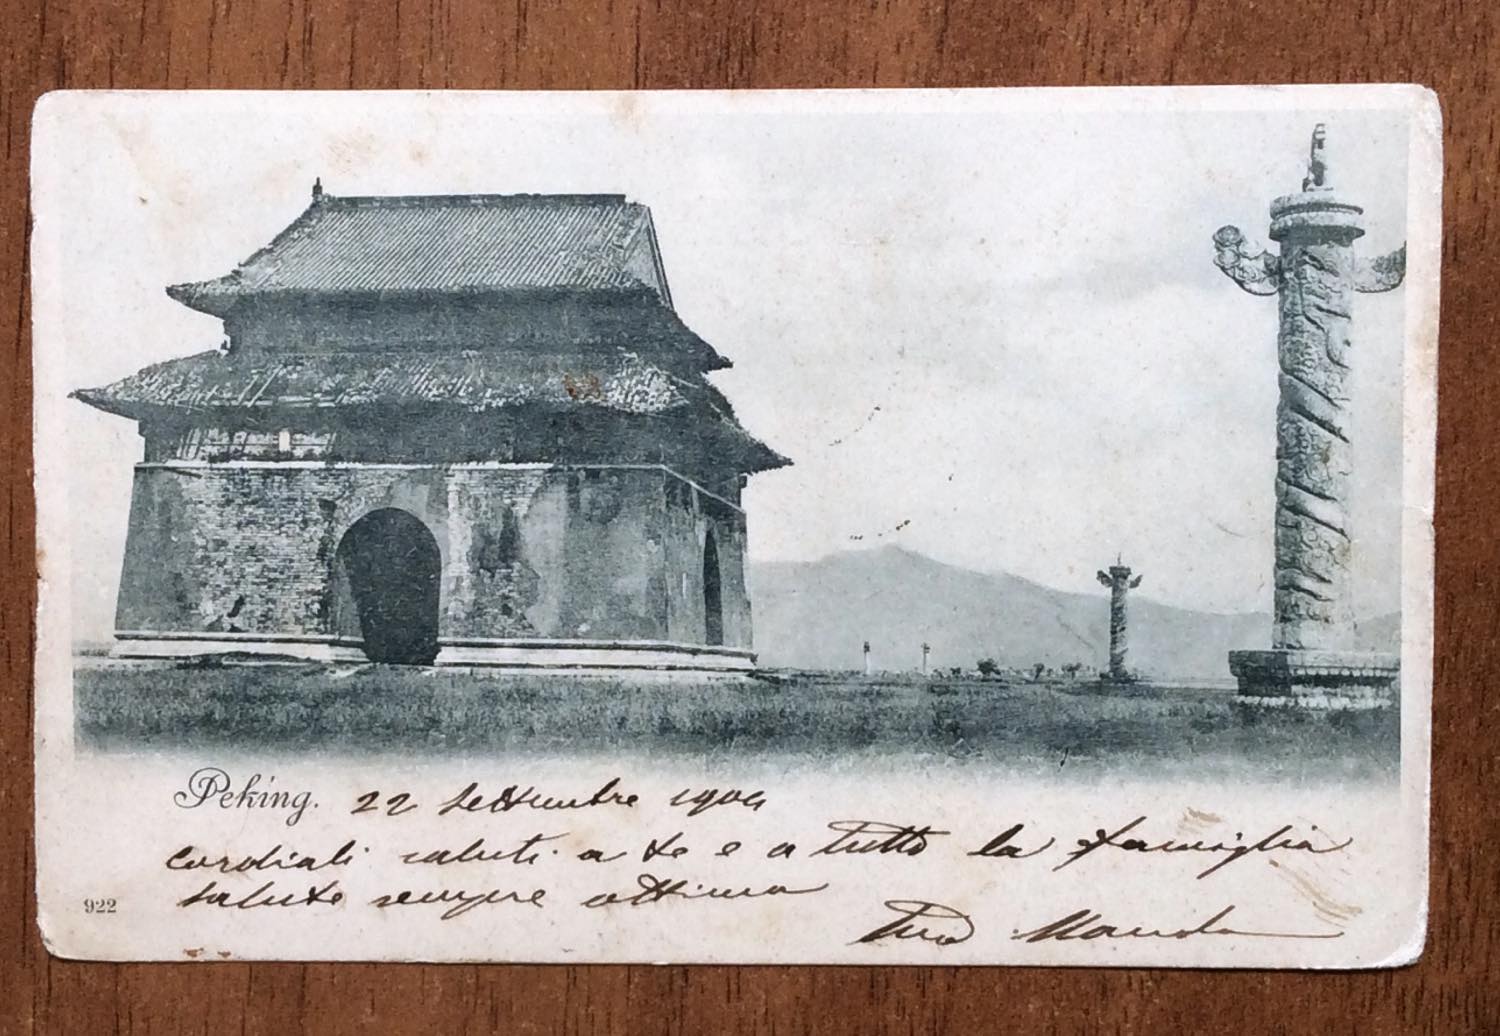 Peking. 22 settembre 1904
cordiali saluti a te e a tutto la famiglia
salute sempre ottima
922